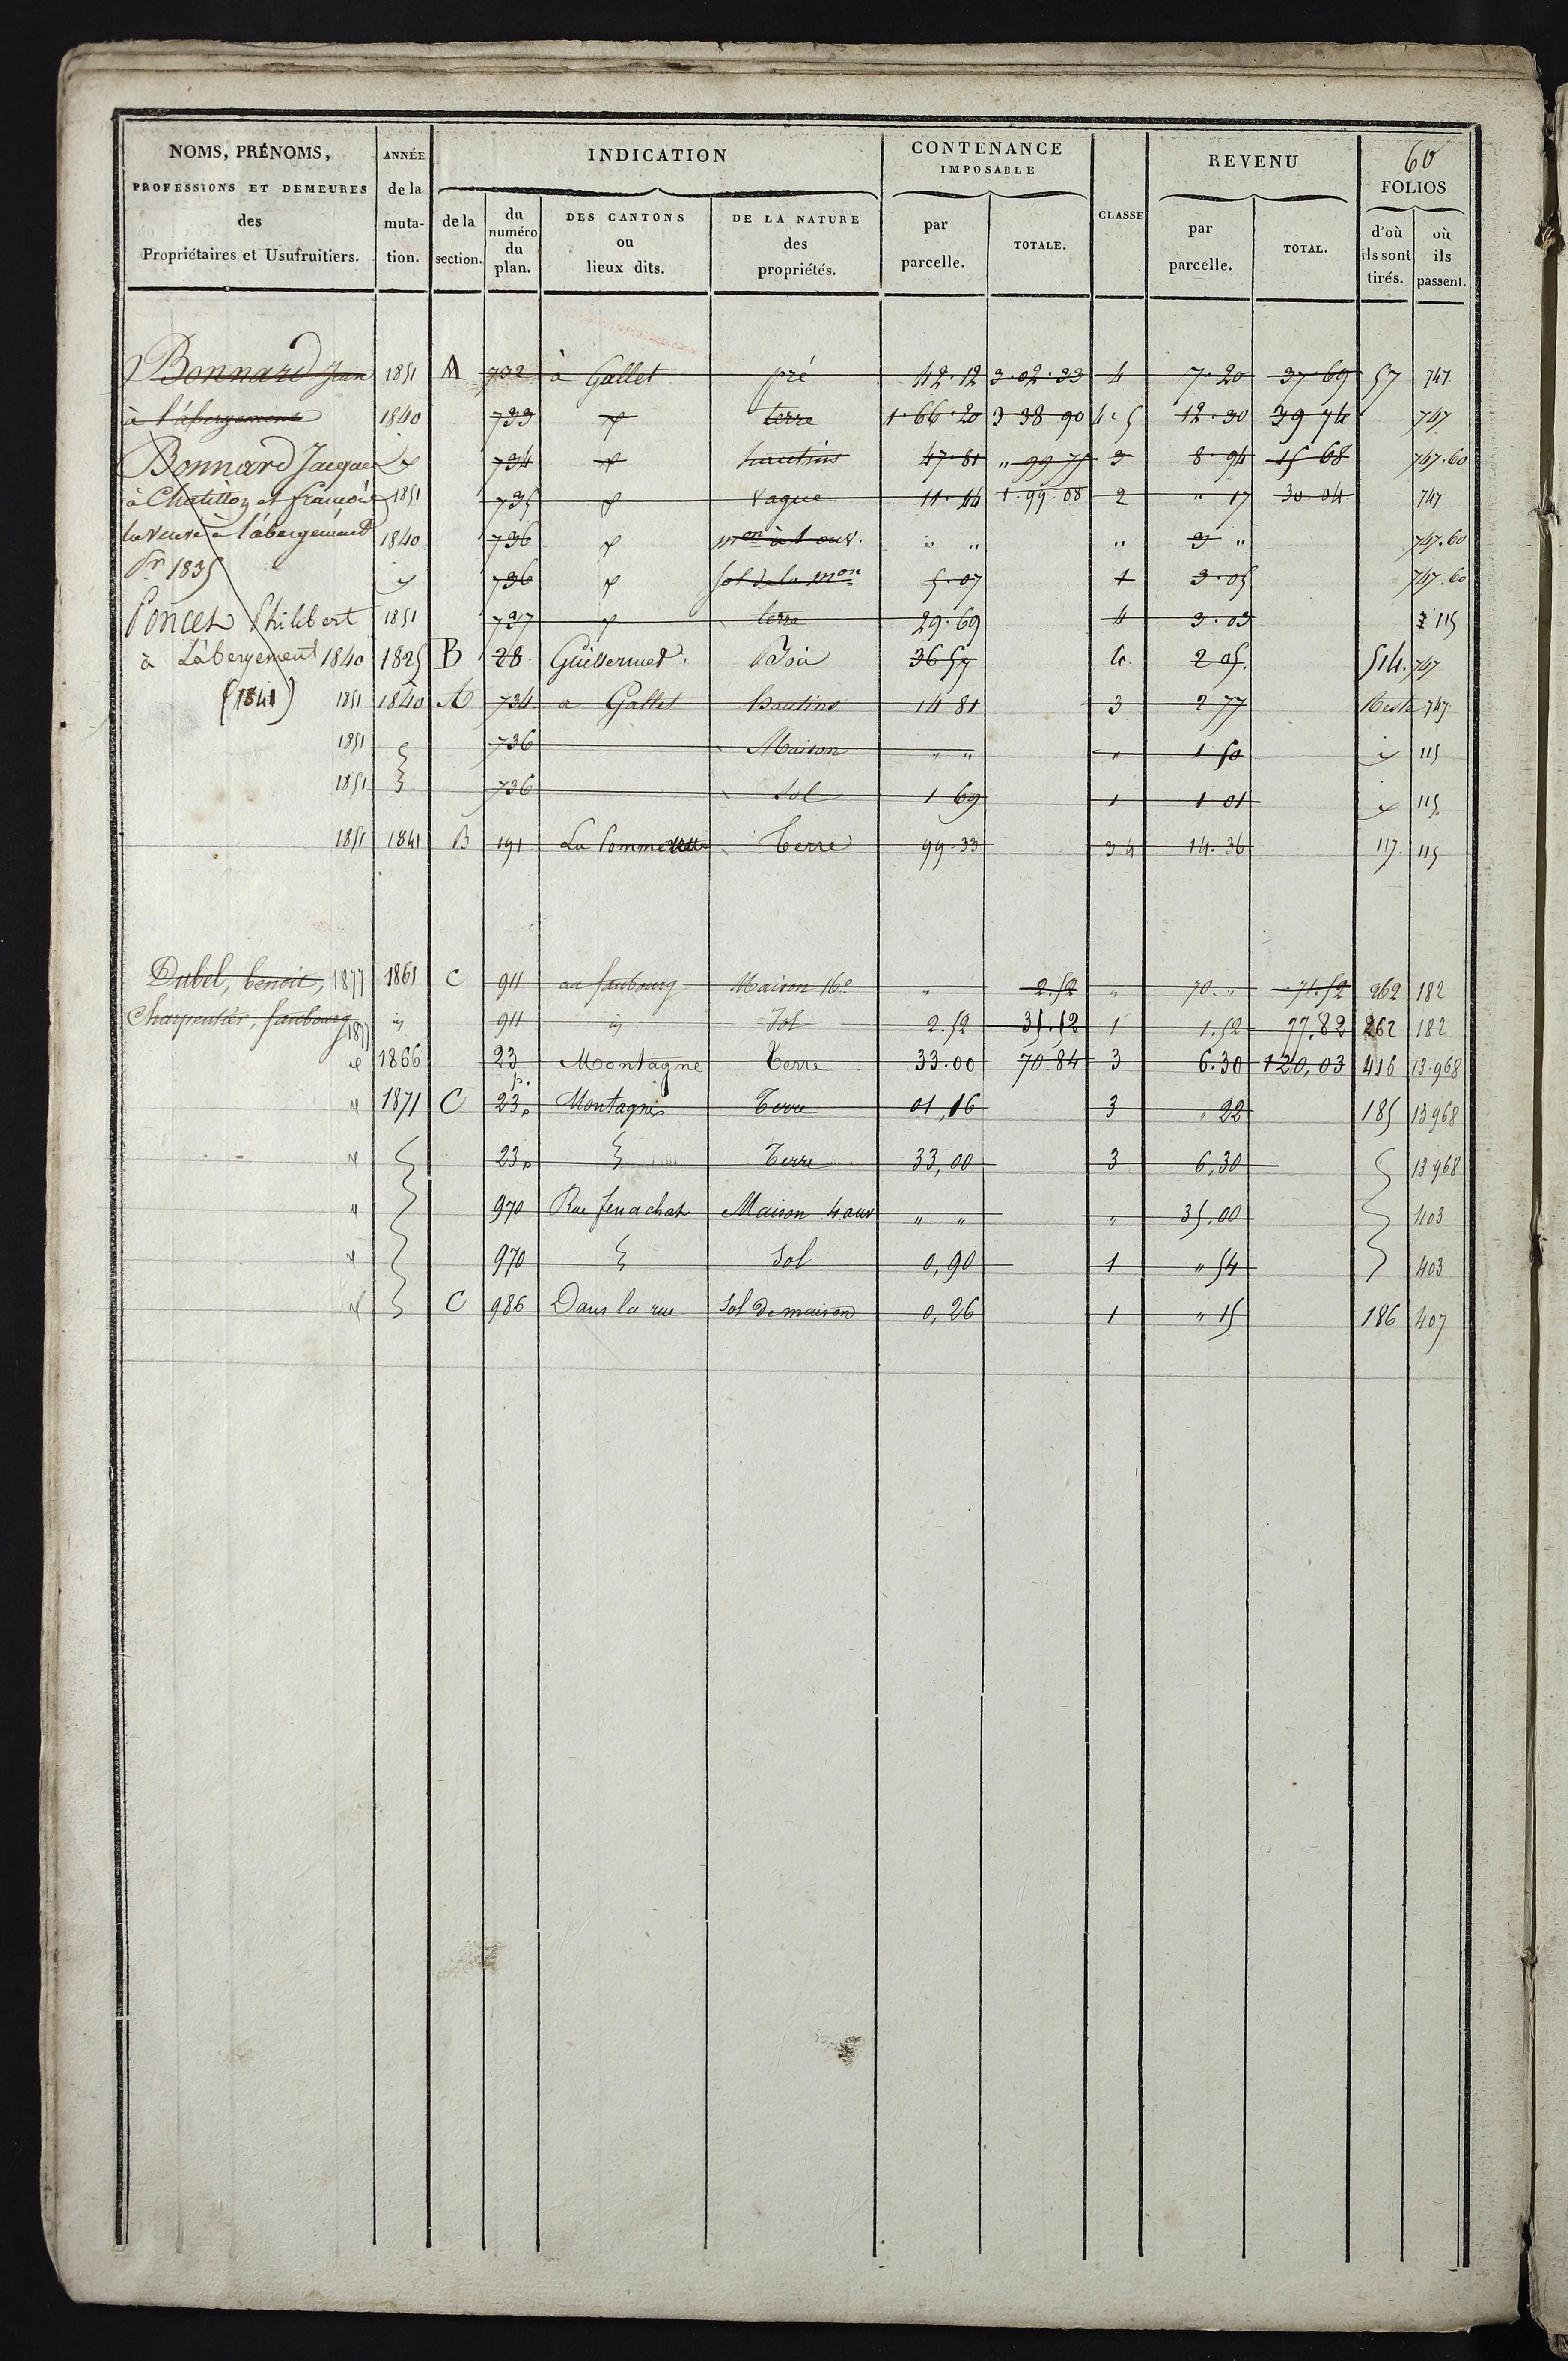 60
NOMS, PRÉNOMS, PROFESSIONS ET DEMEURES des Propriétaires et Usufruitiers.
ANNÉE de la muta-tion.
INDICATION
de la section.
du numéro du plan.
DES CANTONS ou lieux dits.
DE LA NATURE des propriétés.
CONTENANCE IMPOSABLE
par parcelle.
TOTALE.
CLASSE
REVENU
par parcelle.
TOTAL.
FOLIOS
d'où ils sont tirés.
où ils passent.
Bonnard Jean 1851 A 732 à Gallet pré 42.12 3.02.33 4 7.20 37.69 57 747
à l'abergement 1840 733 terre 1.66.20 3 38 90 4.5 12.30 39 74 747
Bonnard Jacques 734 hautins 47.81 " 99 75 3 8.94 15 68 747.60
à Chatillon et françoise 1851 735 vague 11.44 1.99.08 2 " 17 30 04 747
la veuve à l'abergement 1840 736 mon à 1 ouv. " " " 3 " 747.60
Pr 1835 736 sol de la mon 5.07 1 3.05 747.60
Poncet Philibert 1851 737 terre 29.69 4 3.03 115
à Labergement 1840 1825 B 28 Guillermet Bois 36 57 4 2 05 514. 747
(1841) 1851 1840 A 734 a Gallet hautins 14 81 3 2 77 Reste 747
1851 736 Maison " " " 1 50 115
1851 736 Sol 1 69 1 1 01 115
1851 1841 B 191 Terre 99.33 3 4 14.36 117 115
Dubel, benoit, 1877 1861 C 911 au faubourg Maison 16e " 2.52 " 70. " 71.52 262 182
Charpentier, faubourg 1877 id 911 id Sol 2.52 35.52 1 1.52 77.82 262 182
1866 23 p. Montagne Terre 33.00 70.84 3 6.30 120,03 416 13.968
1871 C 23p Montagne Terre 01,16 3 " 22 185 13968
23p Terre 33,00 3 6,30 13968
970 Rue fenachat Maison 4 ouv " " " 35.00 403
970 Sol 0,90 1 " 54 403
C 986 Dans la rue Sol de maison 0,26 1 " 15 186 407